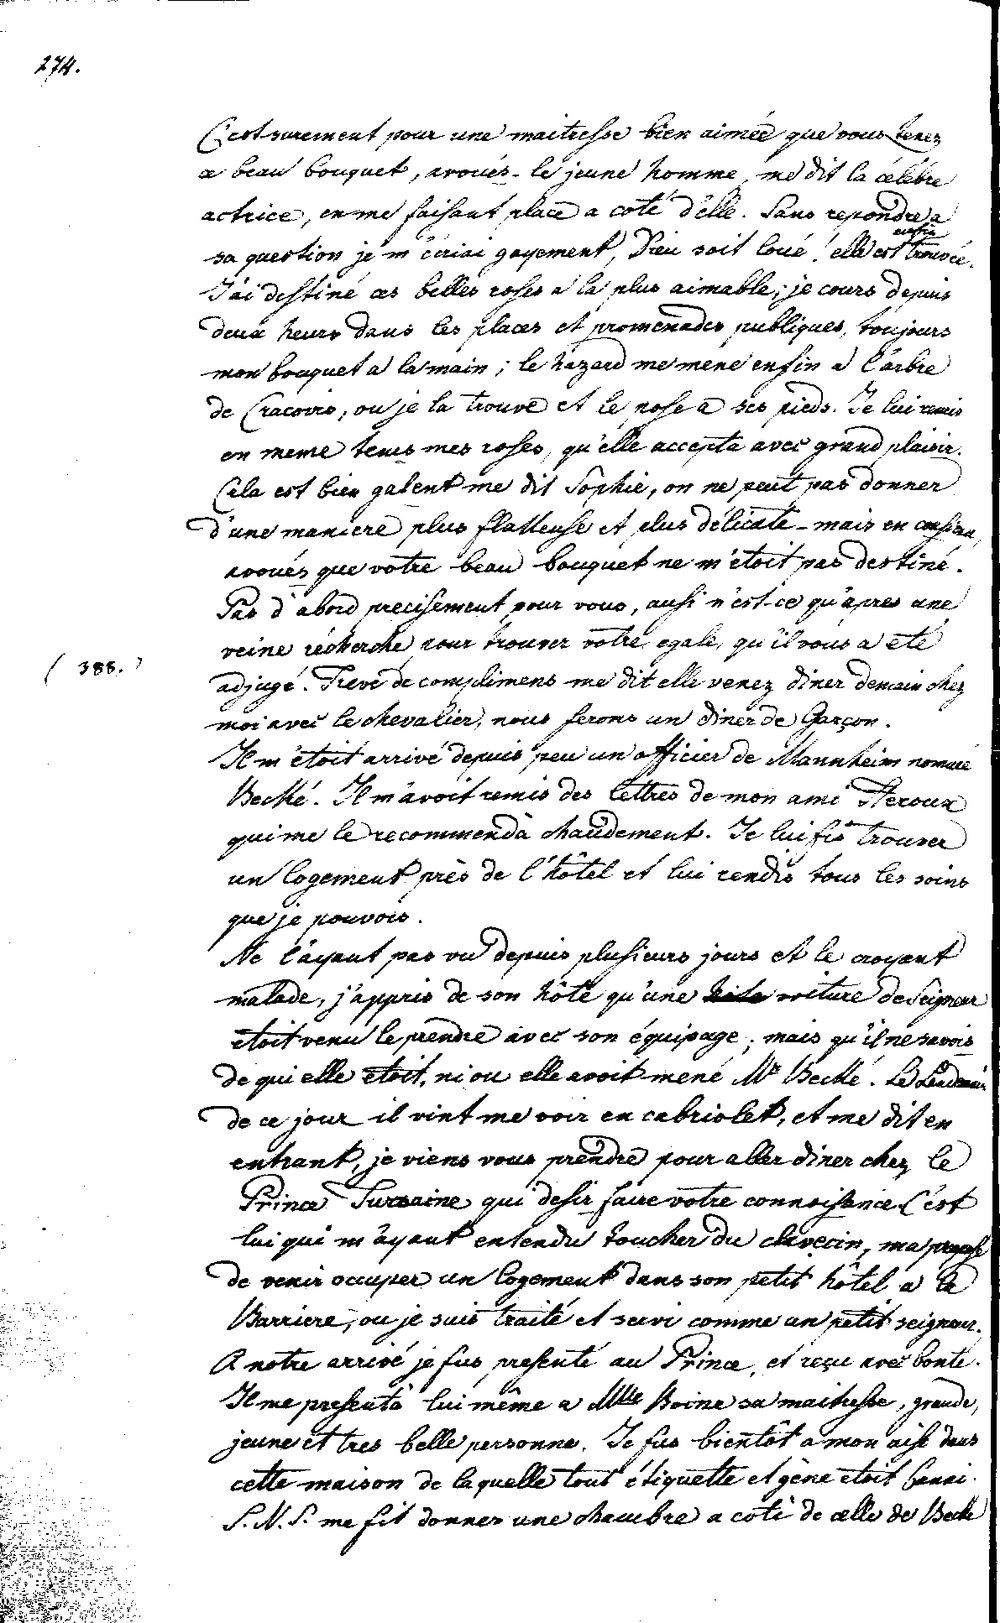 274.
C'est surement pour une maitresse bien aimée que vous tenez
ce beau bouquet, avoués-le jeune homme, me dit la célébre
actrice, en me faisant place a coté d'elle. Sans repondre a
sa question je m'écriai gayement, Dieu soit loué! elle est enfin trouvée.
J'ai destiné ces belles roses a la plus aimable, je cours depuis
deux heurs dans les places et promenades publiques, toujours
mon bouquet a la main; le hazard me mene enfin a l'arbre
de Cracovie, ou je la trouve et le pose a ses pieds. Je lui remis
en meme tems mes roses, qu'elle accepta avec grand plaisir.
Cela est bien galent me dit Sophie, on ne peut pas donner
d'une maniere plus flatteuse et plus délicate - mais en
avoués que votre beau bouquet ne m'étoit pas destiné.
Pas d'abord precisement pour vous, ausi n'est-ce qu'apres une
veine récherche pour trouver votre egale, qu'il vous a eté
( 388. )
adjugé. Treve de complimens me dit elle venez diner demain chez
moi avec le chevalier, nous ferons un diner de Garçon.
Il m'étoit arrivé depuis peu un officier de Mannheim nommé
Becké. Il m'avoit remis des lettres de mon ami
qui me le recommenda chaudement. Je lui fis trouver
un logement près de l'hôtel et lui rendis tous les soins
que je pouvois.
Ne l'ayant pas vu depuis plusieurs jours et le croyant
malade, j'appris de son hôte qu'une voiture de Seigneur
etoit venu le prendre avec son équipage; mais qu'il ne savois
de qui elle etoit, ni ou elle avoit mené Mr Becké. Le Lendemain
de ce jour il vint me voir en cabriolet, et me dit en
entrant, je viens vous prendre pour aller diner chez le
Prince qui desir faire votre connoisance. C'est
lui qui m'ayant entendu toucher du clavecin, m'a proposé
de venir occuper un logement dans son petit hôtel a la
Barriere, ou je suis traité et servi comme un petit seigneur.
A notre arrivé je fus presenté au Prince, et reçu avec bonté.
Il me presenta lui même a Mlle sa maitresse, grande,
jeune et tres belle personne. Je fus bientôt a mon aise dans
cette maison de laquelle tout étiquette et gène etoit banni.
me fit donner une chambre a coté de celle de Becke